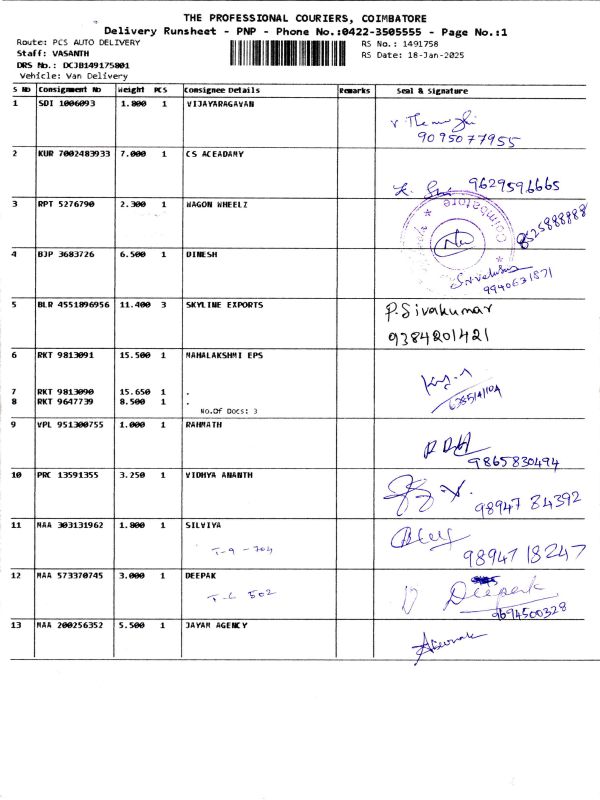 THE PROFESSIONAL COURIERS, COIMBATORE
Delivery Runsheet - PNP - Phone No.:0422-3505555 - Page No.:1
Route: PCS AUTO DELIVERY
RS No.: 1491758
Staff: VASANTH
RS Date: 18-Jan-2025
DRS No.: DCJB149175801
Vehicle: Van Delivery
S No Consignment No Weight PCS Consignee Details Remarks Seal & Signature
1 SDI 1006093 1.800 1 VIJAYARAGAVAN
9095077955
2 KUR 7002483933 7.000 1 CS ACEADAMY
9629596665
3 RPT 5276790 2.300 1 WAGON WHEELZ
Coimbatore
8525888888
4 BJP 3683726 6.500 1 DINESH
9940631871
5 BLR 4551896956 11.400 3 SKYLINE EXPORTS
P.Sivakumar
9384201421
6 RKT 9813091 15.500 1 MAHALAKSHMI EPS
7 RKT 9813090 15.650 1 .
8 RKT 9647739 8.500 1 .
No.Of Docs: 3
9 VPL 951300755 1.000 1 RAHMATH
9865830494
10 PRC 13591355 3.250 1 VIDHYA ANANTH
98947 84392
11 MAA 303131962 1.800 1 SILVIYA
T-9-704
98947 18247
12 MAA 573370745 3.000 1 DEEPAK
T-C 502
Deepark
9694500328
13 MAA 200256352 5.500 1 JAYAM AGENCY